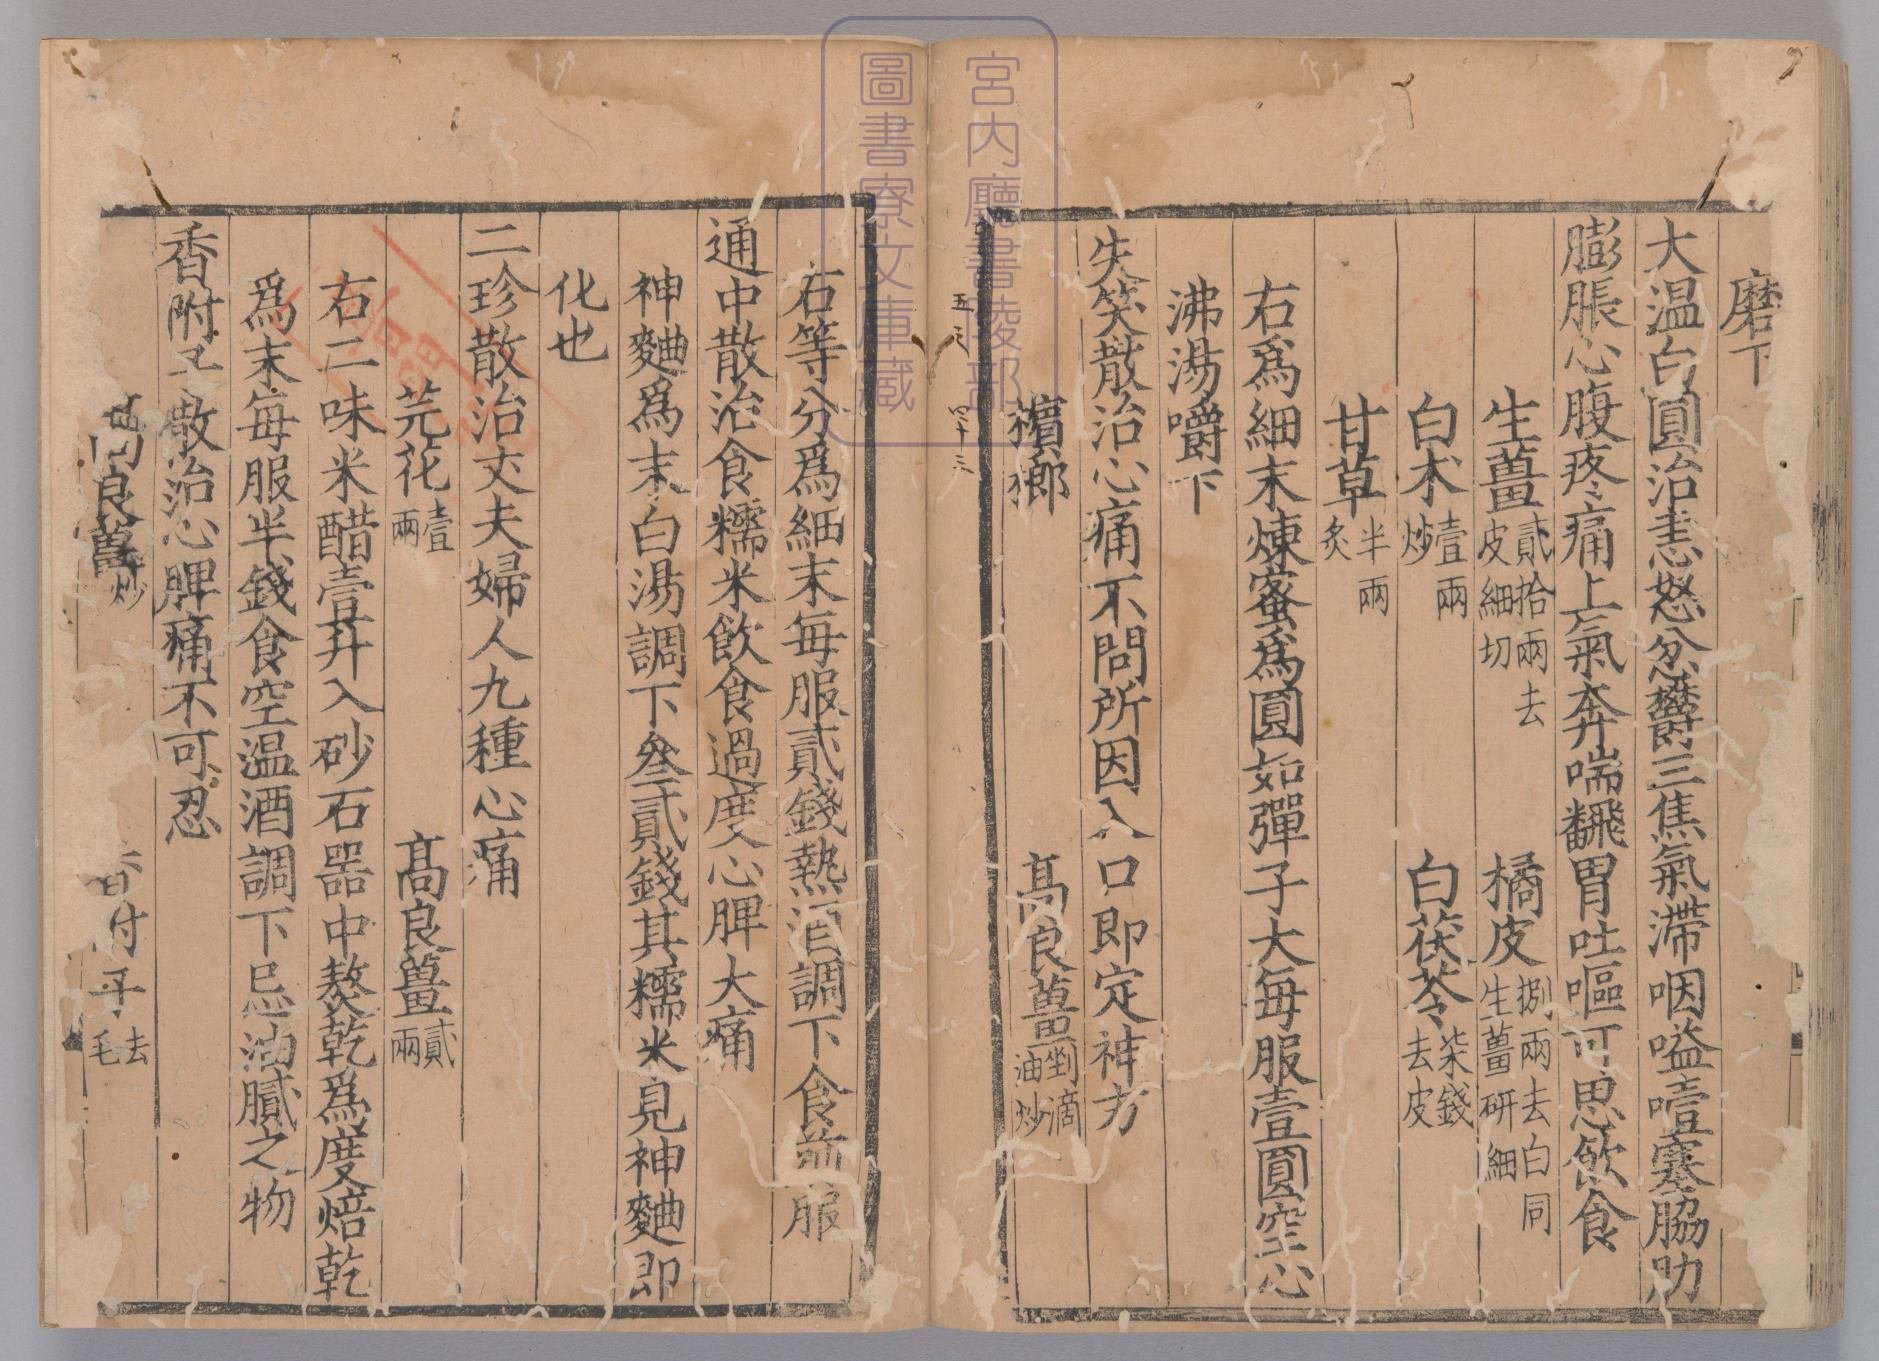 磨下
大温白圓治恚怒忿欝三焦氣滯咽嗌噎塞脇肋
膨脹心腹疼痛上氣奔喘飜胃吐嘔可思飲食
生薑貳拾兩去皮細切 橘皮捌兩去白同生薑研細
白朮壹兩炒 白茯苓柒錢去皮
甘草半兩炙
右爲細末煉蜜爲圓如彈子大每服壹圓空心
沸湯嚼下
失笑散治心痛不問所因入口即定神方
檳榔 髙良薑剉滴油炒
五三 四十三
右等分爲細末每服貳錢熱酒調下食前服
通中散治食糯米飲食過度心脾大痛
神麯爲末白湯調下叄貳錢其糯米見神麯即
化也
二珍散治丈夫婦人九種心痛
芫花壹兩 髙良薑貳兩
右二味米醋壹升入砂石器中熬乾爲度焙乾
爲末每服半錢食空温酒調下忌油膩之物
香附子散治心脾痛不可忍
高良薑炒 香付子去毛
宮内廳書陵部
圖書寮文庫藏